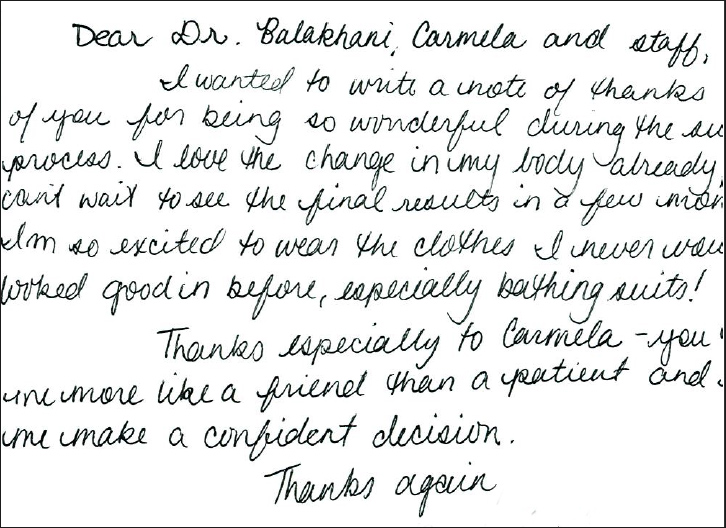 Dear Dr. Balakhani, Carmela and staff,
I wanted to write a note of thanks
of you for being so wonderful during the su
process. I love the change in my body already
can't wait to see the final results in a few mon
I'm so excited to wear the clothes I never wou
looked good in before, especially bathing suits!
Thanks especially to Carmela - you
me more like a friend than a patient and
me make a confident decision.
Thanks again